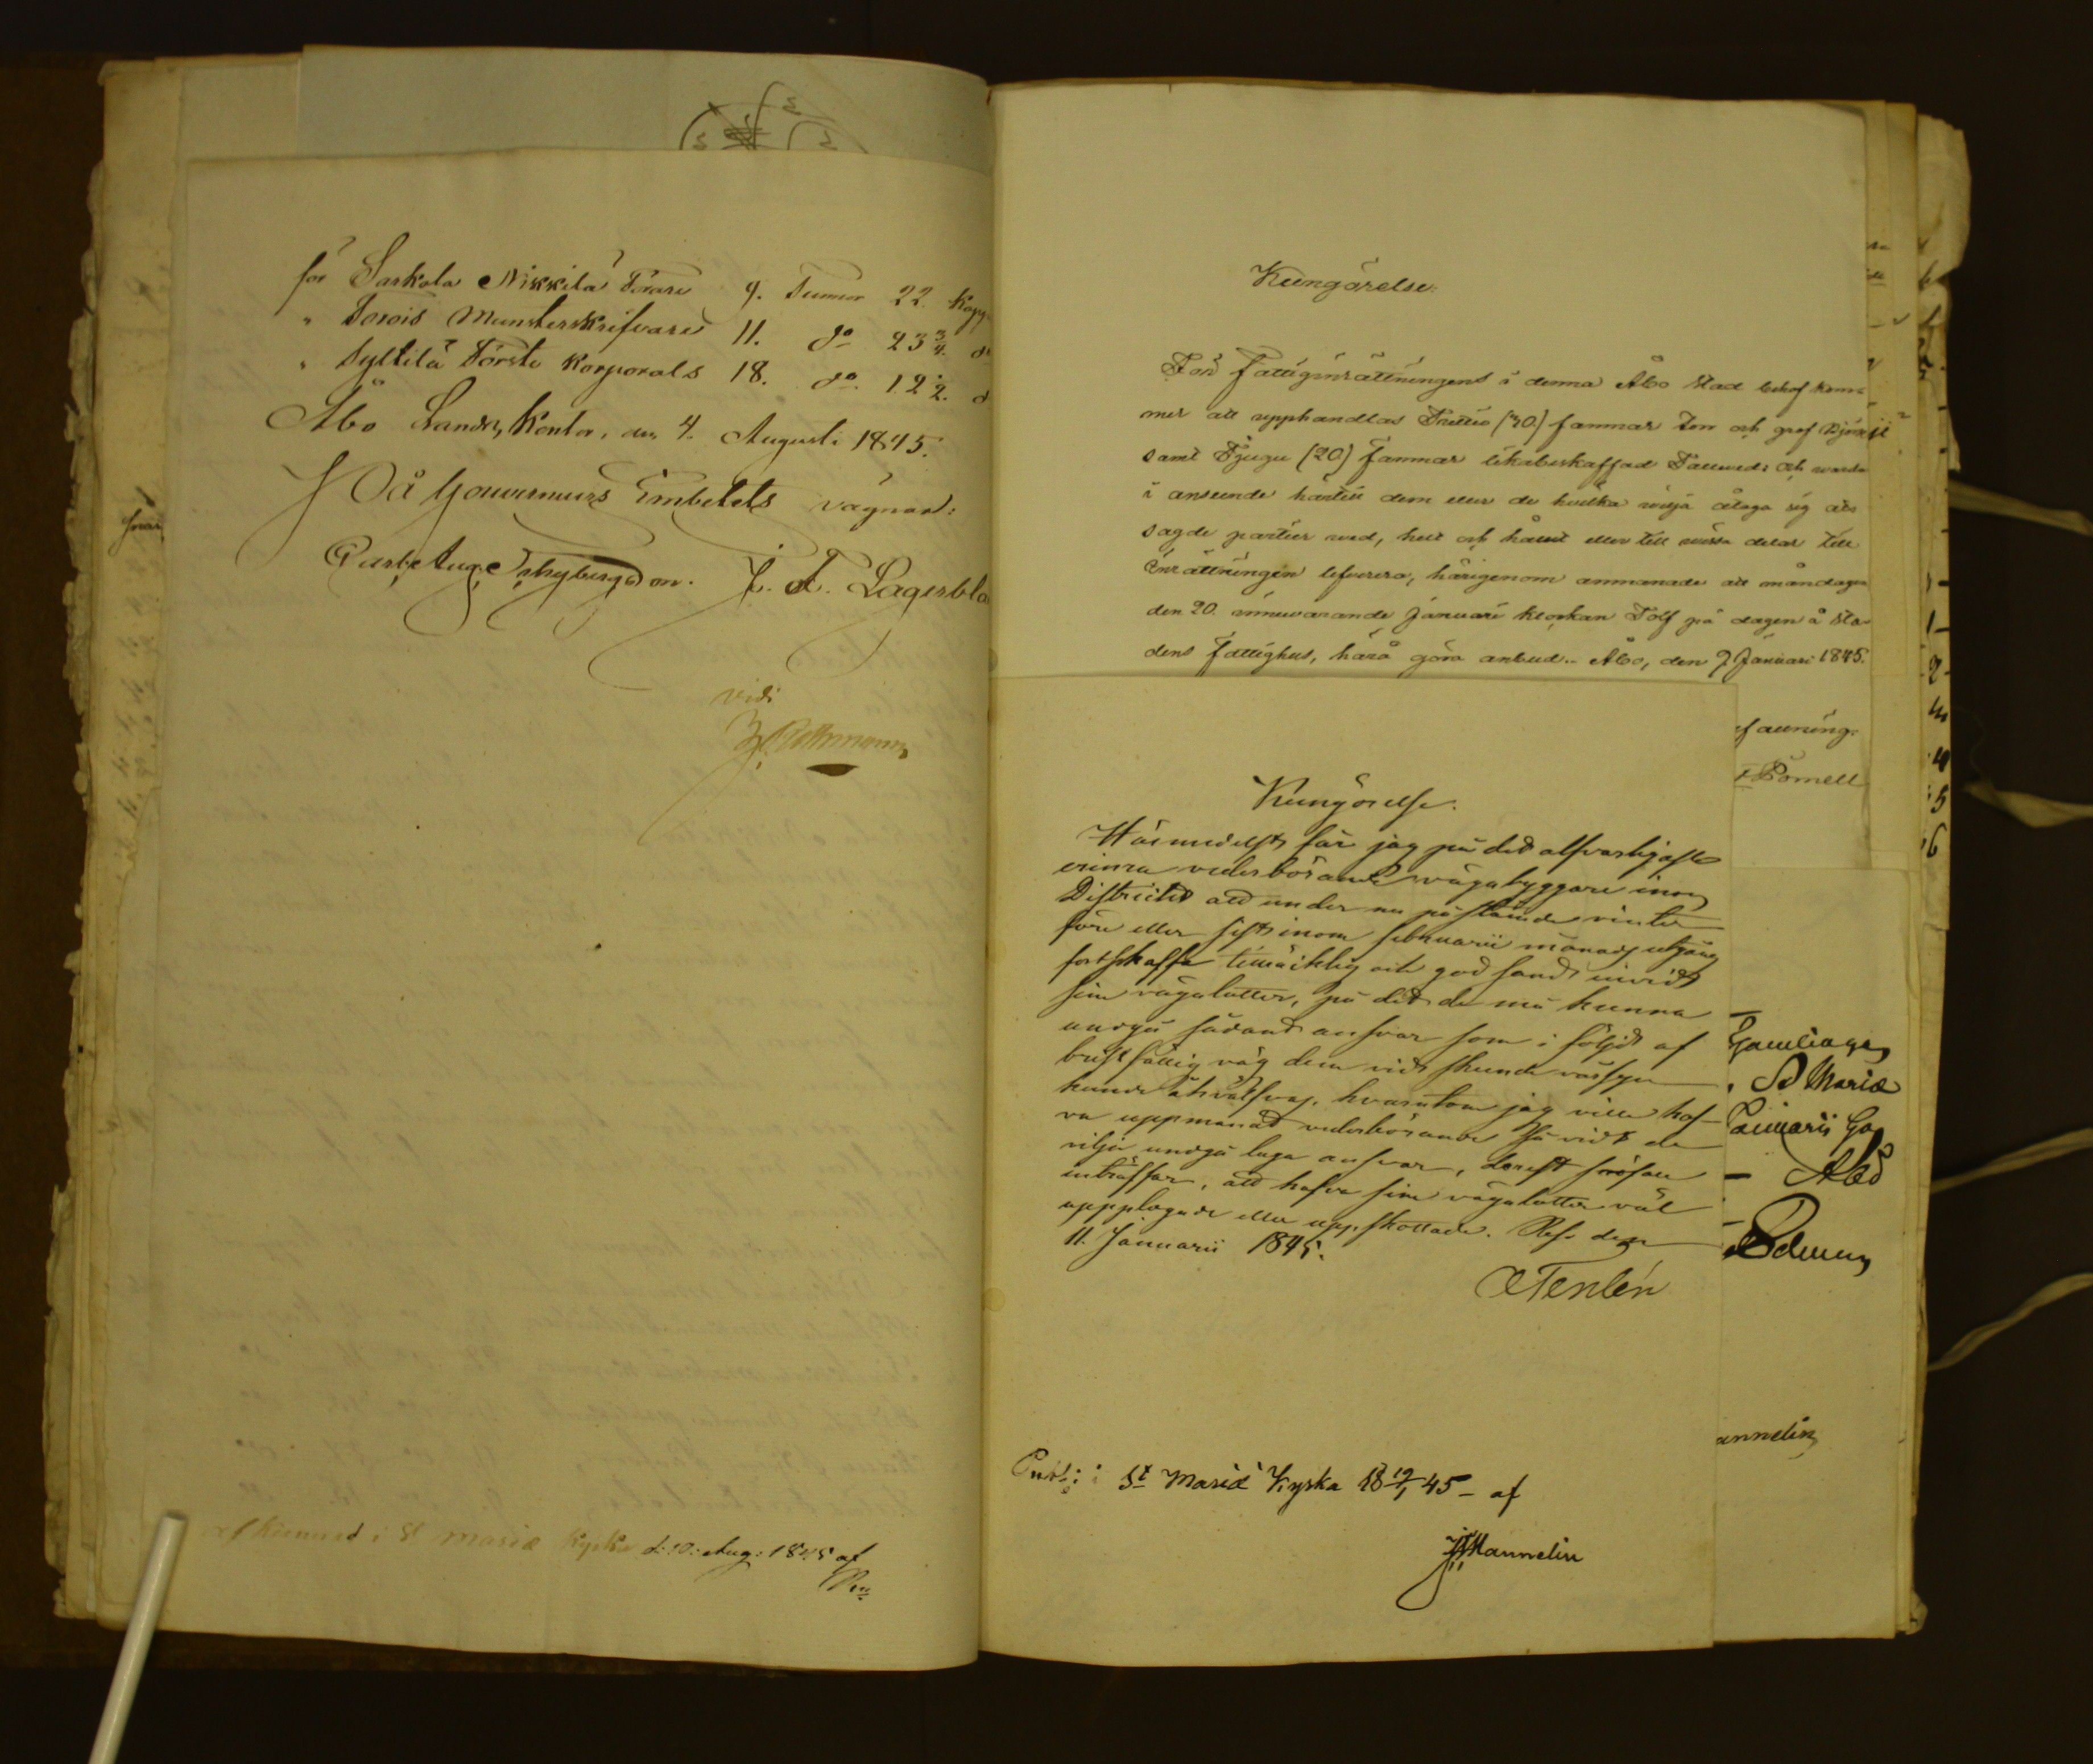 för Sarkola Nikkilä Förare 9. Tunnor 22. Kapp
" Torois Munsterskrifvare 11. do 23 3/4. d
" Syltilä Förste Korporals 18. do. 12 1/2. d
Åbo Lands Kontor, den 4. Augusti 1845.
På Gouverneurs Embetets vägnar:
J. F. Lagerbla
vidi
i St Mariæ Kyrka d: 10: Aug: 1845 af
Kungörelse.
För Fattiginrättningens i denna Åbo stad behof kom-
mer att upphandlas Trettio (30) famnar torr och grof Björk
samt Tjugu (20) famnar likabeskaffad Talluved; och warda
i anseende härtill dem eller de hvilka vilja åtaga sig att
sagde partier wed, helt och hållit eller till vissa delar till
Inrättningen lefverera, härigenom anmanade att måndagen
den 20. innewarande Januari klockan Tolf på dagen å sta-
dens fattighus, härå göra anbud. Åbo, den 7 Januari 1845.
Kungörelse.
Härmedelst får jag på det alfvarligaste
erinra vederbörande vägabyggare inom
Districtet att under nu påstående vinter
före eller sist inom februarii månads utgång
fortskaffa tillräcklig och god sand invid
sina vägalotter, på det de må kunna
undgå sådant ansvar som i följd af
bristfällig väg dem vid skeende vägsyn
kunde åhvälfvas, hvarutom jag vill haf-
va uppmanat vederbörande så vidt de
vilja undgå laga ansvar, derest snöfall
inträffar, att hafva sina vägalotter väl
upplogade eller uppskottade. Reso den
11. Januarii 1845.
Publ: i St Mariæ Kyrka 18 19/1 45 – af
Mannelin
St Mariæ
Åbo
annelin